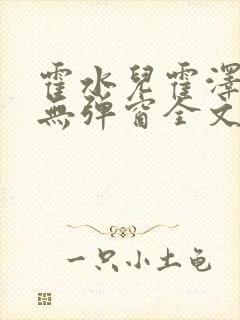 霍水兒霍澤
無彈窗全文
一只小土龟